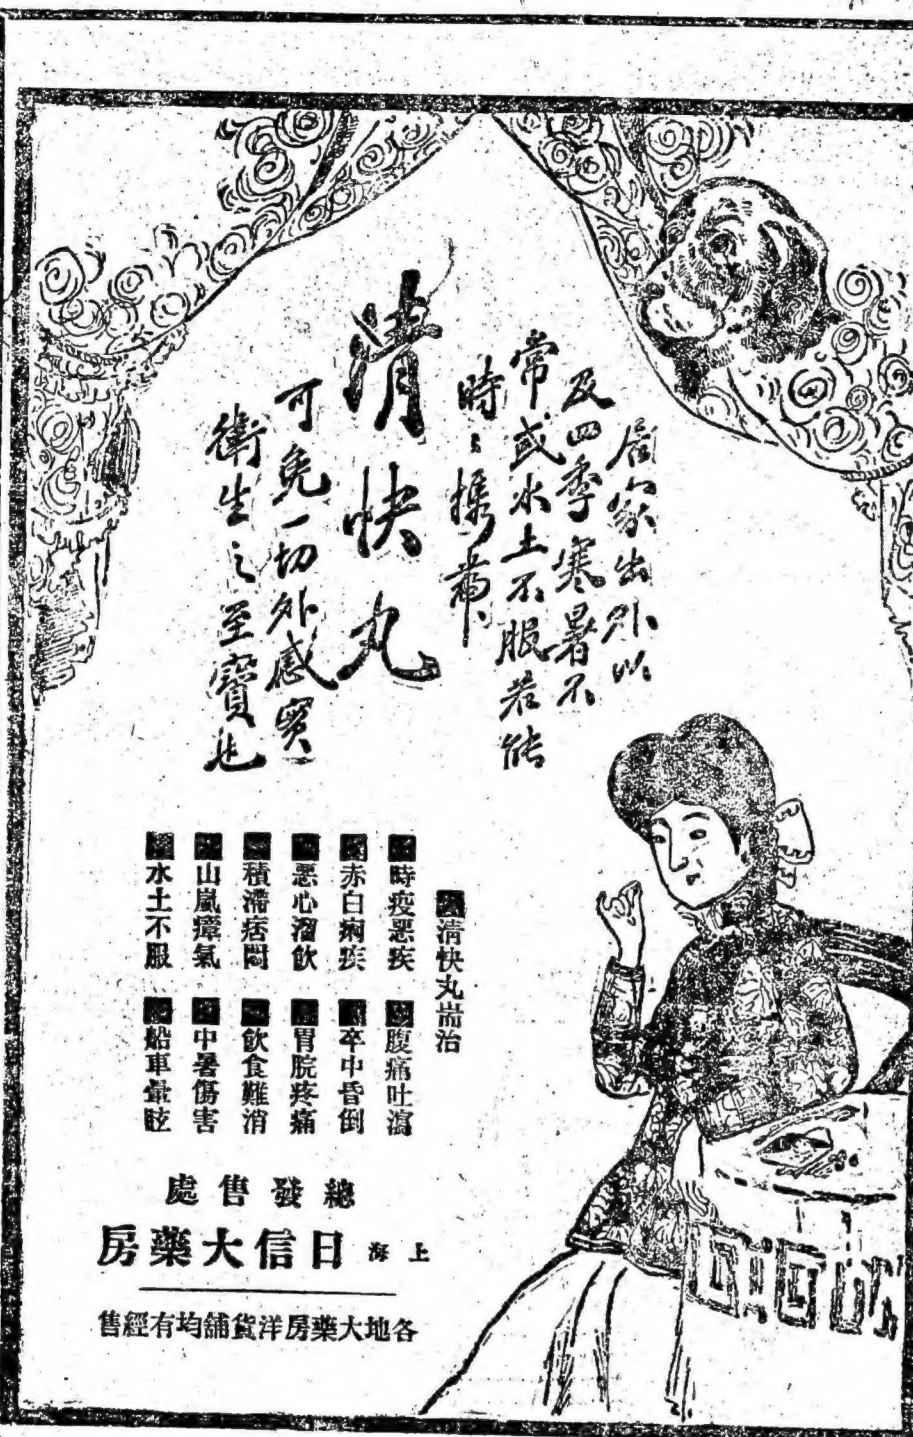 居家出外以
及四季寒暑不
常或水土不服若能
時〻攜帶
清快丸
可免一切外感實
衛生之至寶也
清快丸耑治
時疫惡疾
腹痛吐瀉
赤白痢疾
卒中昏倒
惡心溜飲
胃脘疼痛
積滯痞悶
飲食難消
山嵐瘴氣
中暑傷害
水土不服
船車暈眩
總發售處
上海 日信大藥房
各地大藥房洋貨舖均有經售